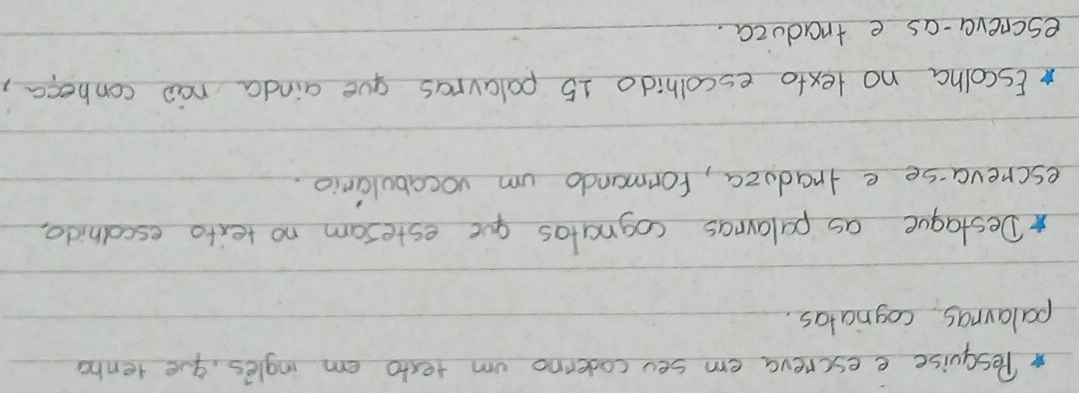 * Pesquise e escreva em seu caderno um texto em inglês, que tenha
palavras cognatas.
* Destaque as palavras cognatas que estejam no texto escolhido,
escreva-se e traduza, formando um vocabulário.
* Escolha no texto escolhido 15 palavras que ainda não conheça,
escreva-as e traduza.